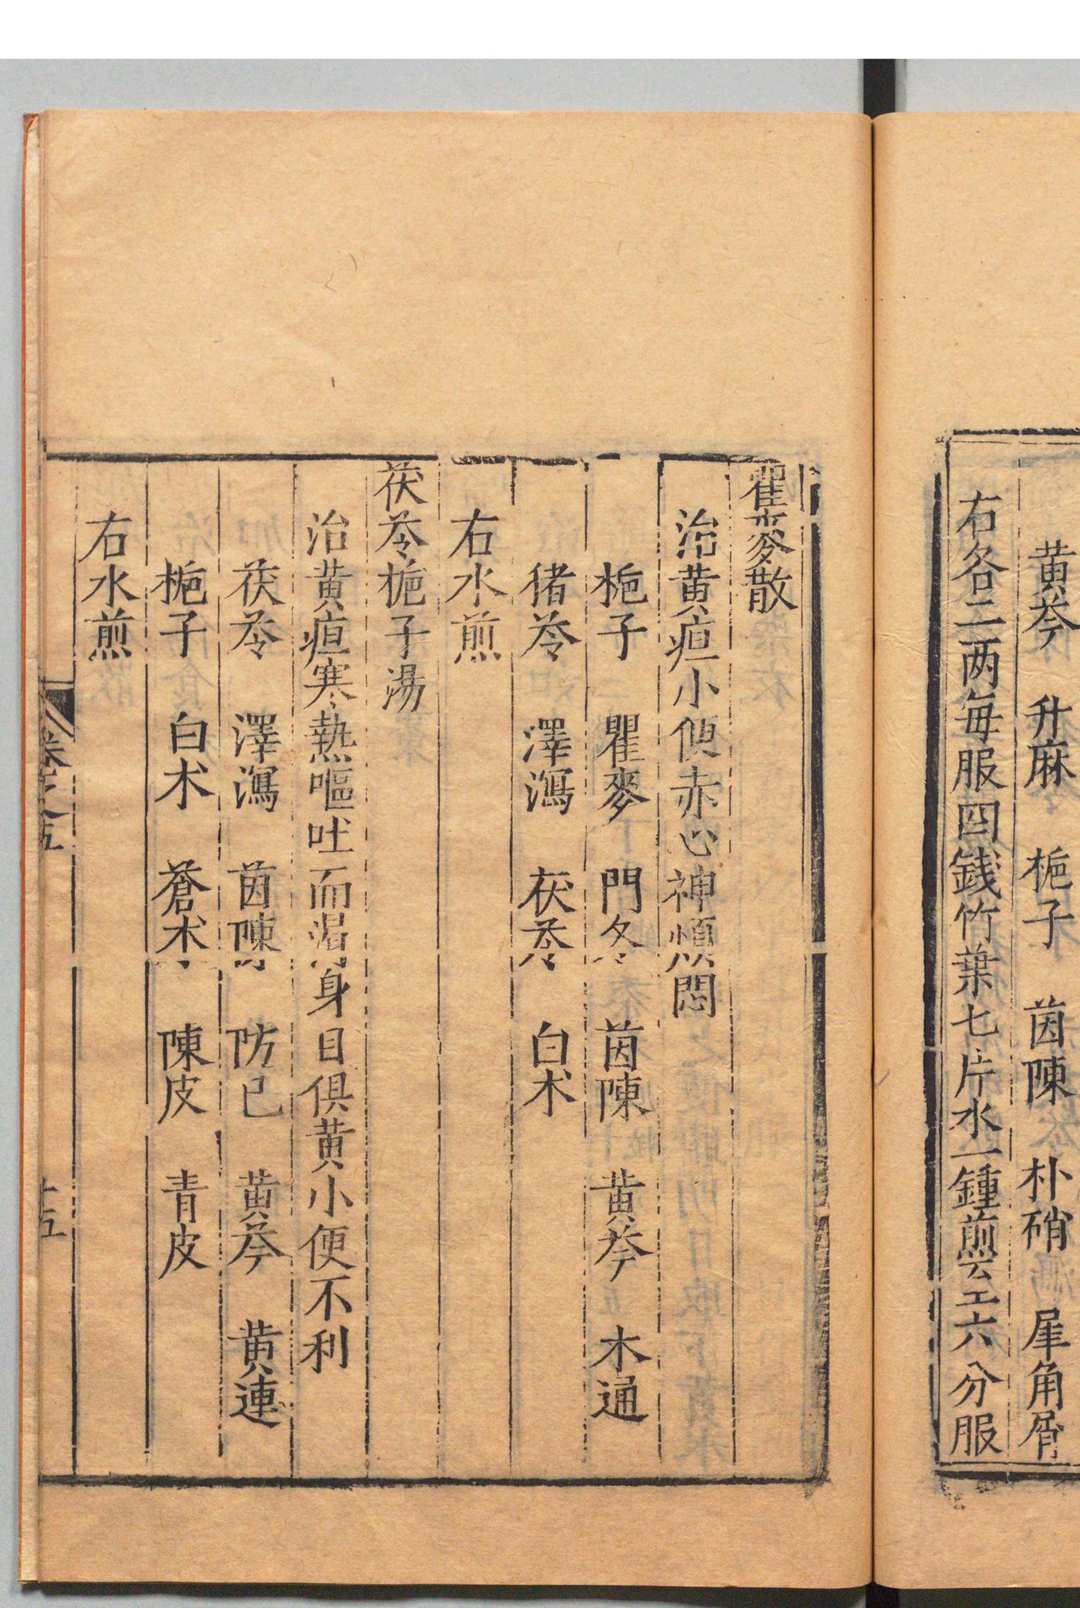 黄芩 升麻 梔子 茵陳 朴硝 犀角屑
右各二两每服四錢竹葉七片水一鍾煎至六分服
瞿麥散
治黄疸小便赤心神煩悶
梔子 瞿麥 門冬 茵陳 黄芩 木通
猪苓 澤瀉 茯苓 白术
右水煎
茯苓梔子湯
治黄疸寒熱嘔吐而渴身目俱黄小便不利
茯苓 澤瀉 茵陳 防已 黄芩 黄連
梔子 白术 蒼术 陳皮 青皮
右水煎
卷之五
十五